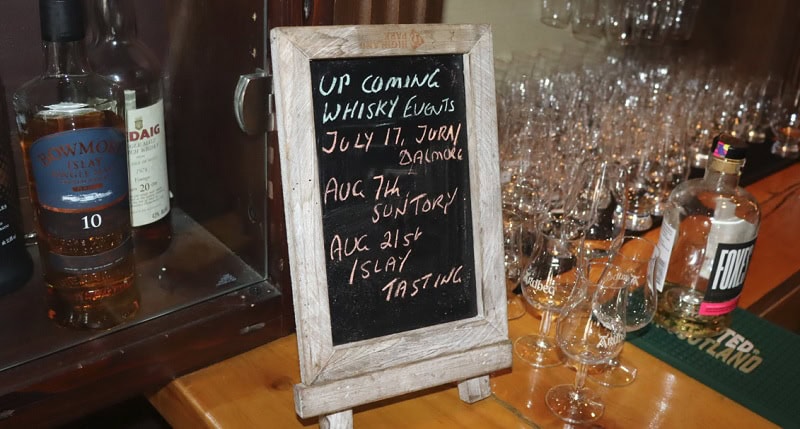 UP COMING
WHISKY EVENTS
JULY 17, JURA/
DALMORE
AUG 7th
SUNTORY
AUG 21st
ISLAY
TASTING
BOWMORE
ISLAY
SINGLE MALT
10
DAIG
20
FOXES
SCOTLAND